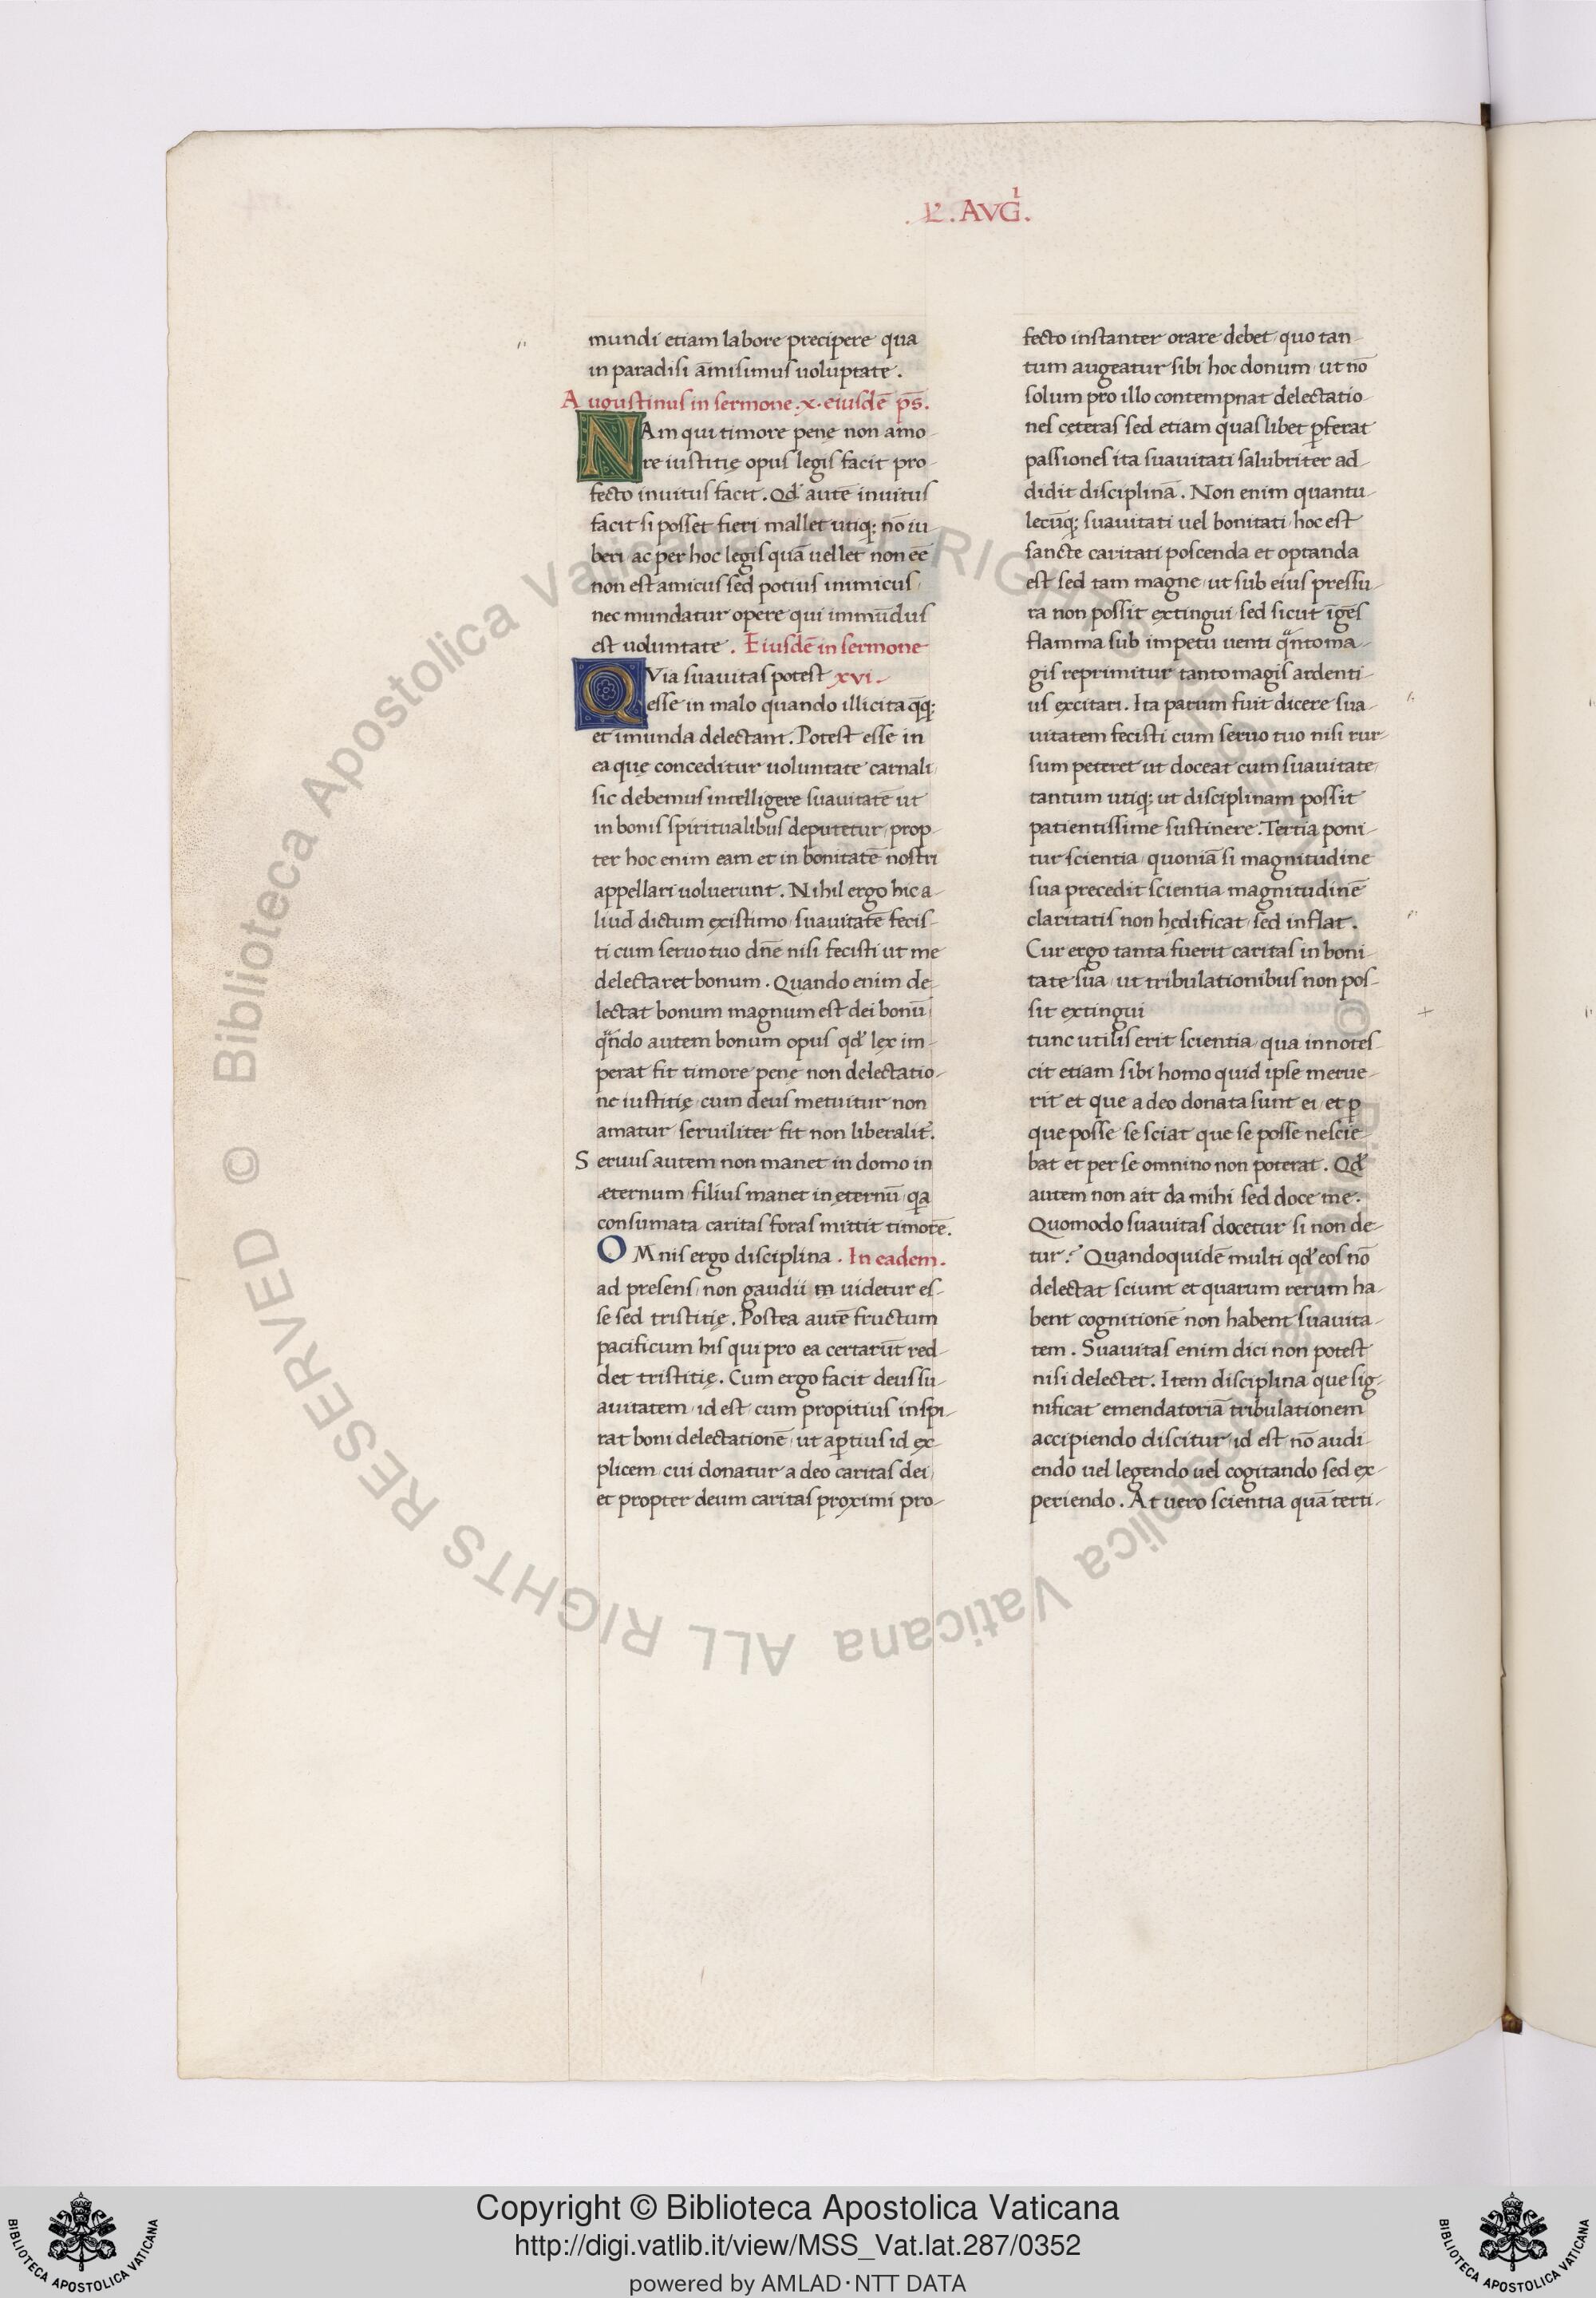 .L'. AVG̅ı.
mundi etiam labore precipere qua
in paradisi āmisimus uoluptate.
Augustinus in sermone .x. eiusdē p̄s.
NAm qui timore penę non amo-
re iustitię opus legis facit pro-
fecto inuitus facit. Qđ autē inuitus
facit si posset fieri mallet utiq; nō iu
beri ac per hoc legis quā uellet non eē
non est amicus sed potius inimicus
nec mundatur opere qui immūdus
est uoluntate. Eiusdē in sermone
QVia suauitas potest xvi.
esse in malo quando illicita q̄q;
et imunda delectant. Potest esse in
ea quę conceditur uoluntate carnali
sic debemus intelligere suauitatē ut
in bonis spiritualibus deputetur prop-
ter hoc enim eam et in bonitatē nostri
appellari uoluerunt. Nihil ergo hic a-
liud dictum existimo suauitatē fecis-
ti cum seruo tuo dn̄e nisi fecisti ut me
delectaret bonum. Quando enim de-
lectat bonum magnum est dei bonū
qn̄do autem bonum opus qđ lex im-
perat fit timore penę non delectatio-
ne iustitię cum deus metuitur non
amatur seruiliter fit non liberalit̄.
Seruus autem non manet in domo in
æternum filius manet in ęternū qa
consumata caritas foras mittit timorē.
OMnis ergo disciplina. In eadem.
ad presens non gaudii m uidetur es-
se sed tristitię. Postea autē fructum
pacificum his qui pro ea certarūt red-
det tristitię. Cum ergo facit deus su-
auitatem id est cum propitius inspi-
rat boni delectationē ut ap̱tius id ex-
plicem cui donatur a deo caritas dei
et propter deum caritas proximi pro-
fecto instanter orare debet quo tan-
tum augeatur sibi hoc donum ut nō
solum pro illo contempnat delectatio-
nes cęteras sed etiam quaslibet p̱ferat
passiones ita suauitati salubriter ad-
didit disciplinā. Non enim quantu-
lecūq; suauitati uel bonitati hoc est
sancte caritati poscenda et optanda
est sed tam magne ut sub eius pressu-
ra non possit extingui sed sicut īgēs
flamma sub impetu uenti qn̄to ma-
gis reprimitur tanto magis ardenti-
us excitari. Ita parum fuit dicere sua-
uitatem fecisti cum seruo tuo nisi rur-
sum peteret ut doceat cum suauitate
tantum utiq; ut disciplinam possit
patientissime sustinere. Tertia poni-
tur scientia quoniā si magnitudine
sua precedit scientia magnitudinē
claritatis non hędificat sed inflat.
Cur ergo tanta fuerit caritas in boni-
tate sua ut tribulationibus non pos-
sit extingui
tunc utilis erit scientia qua innotes-
cit etiam sibi homo quid ipse merue-
rit et que a deo donata sunt ei et p̱
que posse se sciat que se posse nescie-
bat et per se omnino non poterat. Qđ
autem non ait da mihi sed doce me.
Quomodo suauitas docetur si non de-
tur? Quandoquidē multi qđ eos nō
delectat sciunt et quarum rerum ha-
bent cognitionē non habent suauita-
tem. Suauitas enim dici non potest
nisi delectet. Item disciplina que sig-
nificat emendatoriā tribulationem
accipiendo discitur id est nō audi-
endo uel legendo uel cogitando sed ex-
periendo. At uero scientia quā terti-
© Biblioteca Apostolica Vaticana ALL RIGHTS RESERVED
© Biblioteca Apostolica Vaticana ALL RIGHTS RESERVED
Copyright © Biblioteca Apostolica Vaticana
http://digi.vatlib.it/view/MSS_Vat.lat.287/0352
powered by AMLAD·NTT DATA
BIBLIOTECA APOSTOLICA VATICANA
BIBLIOTECA APOSTOLICA VATICANA